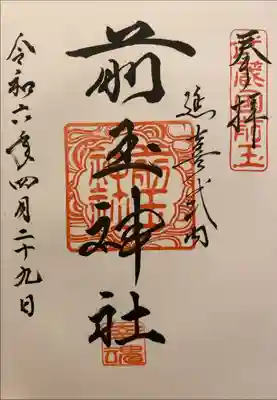 奉拝
延喜式内
前玉神社
令和六年四月二十九日